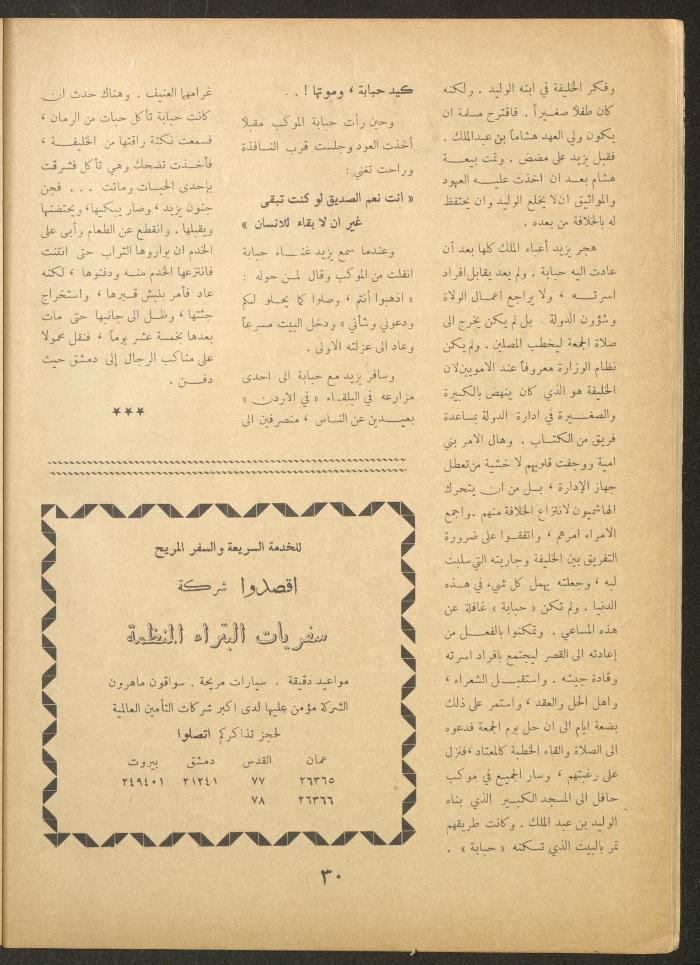 وفكر الخليفة في ابنه الوليد . ولكنه
كان طفلاً صغيراً . فاقترح مسلمة ان
يكون ولي العهد هشاماً بن عبدالملك .
فقبل يزيد على مضض . وتمت بيعة
هشام بعد ان اخذت عليه العهود
والمواثيق ان لا يخلع الوليد وان يحتفظ
له بالخلافة من بعده .
هجر يزيد أعباء الملك كلها بعد أن
عادت اليه حبابة . ولم يعد يقابل افراد
اسرته ، ولا يراجع اعمال الولاة
وشؤون الدولة . بل لم يكن يخرج الى
صلاة الجمعة ليخطب المصلين . ولم يكن
نظام الوزارة معروفاً عند الامويين لان
الخليفة هو الذي كان ينهض بالكبيرة
والصغيرة في ادارة الدولة بمساعدة
فريق من الكتاب . وهال الامر بني
امية ووجفت قلوبهم لا خشية من تعطل
جهاز الإدارة ، بل من ان يتحرك
الهاشميون لانتزاع الخلافة منهم . واجمع
الامراء امرهم ، واتفقوا على ضرورة
التفريق بين الخليفة وجاريته التي سلبت
لبه ، وجعلته يهمل كل شيء في هذه
الدنيا . ولم تكن « حبابة » غافلة عن
هذه المساعي . وتمكنوا بالفعل من
إعادته الى القصر ليجتمع بافراد اسرته
وقادة جيشه . واستقبل الشعراء ،
واهل الحل والعقد ، واستمر على ذلك
بضعة ايام الى ان حل يوم الجمعة فدعوه
الى الصلاة والقاء الخطبة كالمعتاد ، فنزل
على رغبتهم ، وسار الجميع في موكب
حافل الى المسجد الكبير الذي بناه
الوليد بن عبد الملك . وكانت طريقهم
تمر بالبيت الذي تسكنه « حبابة » .
كيد حبابة ، وموتها ! . .
وحين رأت حبابة الموكب مقبلا
أخذت العود وجلست قرب النافذة
وراحت تغني :
« انت نعم الصديق لو كنت تبقى
غير ان لا بقاء للانسان »
وعندما سمع يزيد غناء حبابة
انفلت من الموكب وقال لمن حوله :
« اذهبوا أنتم ، وصلوا كما يحلو لكم
ودعوني وشأني » ودخل البيت مسرعاً
وعاد الى عزلته الاولى .
وسافر يزيد مع حبابة الى احدى
مزارعه في البلقاء « في الاردن »
بعيدين عن الناس ، منصرفين الى
غرامهما العنيف . وهناك حدث ان
كانت حبابة تأكل حبات من الرمان ،
فسمعت نكتة راقتها من الخليفة ،
فأخذت تضحك وهي تأكل فشرقت
بإحدى الحبات وماتت . . . فجن
جنون يزيد ، وصار يبكيها ، ويحتضنها
ويقبلها . وانقطع عن الطعام وأبى على
الخدم ان يواروها التراب حتى انتنت
فانتزعها الخدم منه ودفنوها ، لكنه
عاد فأمر بنبش قبرها ، واستخراج
جثتها ، وظل الى جانبها حتى مات
بعدها بخمسة عشر يوماً ، فنقل محمولا
على مناكب الرجال إلى دمشق حيث
دفن .
***
للخدمة السريعة والسفر المريح
اقصدوا شركة
سفريات البتراء المنظمة
مواعيد دقيقة . سيارات مريحة . سواقون ماهرون
الشركة مؤمن عليها لدى اكبر شركات التأمين العالمية
لحجز تذاكركم اتصلوا
عمان القدس دمشق بيروت
٢٦٣٦٥ ٧٧ ٢١٢٤١ ٢٤٩٤٠١
٢٦٣٦٦ ٧٨
٣٠